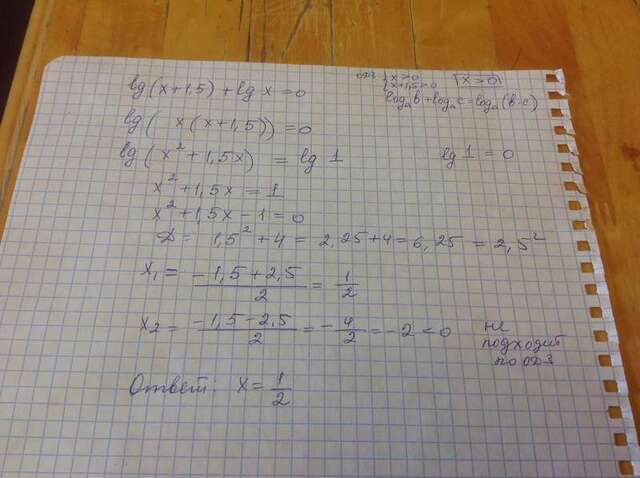 lg(x+1,5)+lg x=0
ОДЗ { x>0
x+1,5>0
x>0
logₐb+logₐc=logₐ(b·c)
lg( x(x+1,5))=0
lg(x²+1,5x) = lg 1
lg 1 = 0
x²+1,5x = 1
x²+1,5x-1=0
D= 1,5²+4= 2,25+4=6,25 = 2,5²
x₁= (-1,5+2,5)/2 = 1/2
x₂= (-1,5-2,5)/2 = -4/2 =-2<0
не
подходит
по ОДЗ
Ответ: x=1/2